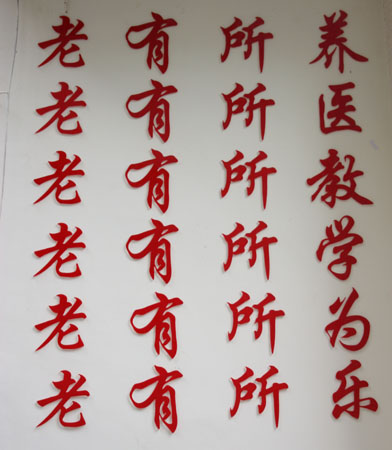 老有所养
老有所医
老有所教
老有所学
老有所为
老有所乐